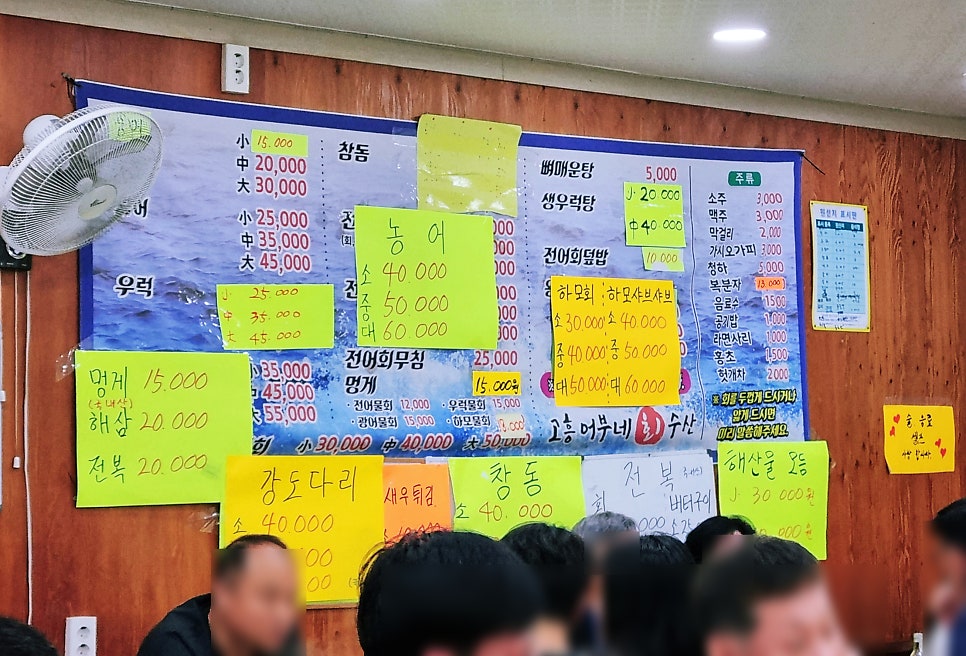 小 15.000
中 20,000
大 30,000
小 25,000
中 35,000
大 45,000
우럭
小 25.000
中 35.000
大 45.000
小 35,000
中 45,000
大 55,000
小 30,000 中 40,000 大 50,000
멍게 15.000
(국내산)
해삼 20.000
전복 20.000
창동
농어
소 40.000
중 50.000
대 60.000
전어회무침 25,000
멍게 15.000원
·전어물회 12,000 ·우럭물회 15,000
·광어물회 15,000 ·하모물회
뼈매운탕 5,000
생우럭탕
小 20 000
中 40.000
전어회덮밥 10,000
하모회
소 30.000
중 40000
대 50.000
하모샤브샤브
소 40.000
중 50.000
대 60.000
고흥어부네회수산
주류
소주 3,000
맥주 3,000
막걸리 2,000
가시오가피 3,000
청하 5,000
복분자 13,000
음료수 1500
공기밥 1,000
라면사리 1,000
홍초 1,500
헛개차 2,000
※ 회를 두껍게 드시거나
얇게 드시면
미리 말씀해주세요.
원산지 표시판
술, 음료
셀프
강도다리
소 40.000
새우튀김
창동
소 40.000
전복
회
버터구이
해산물 모듬
小 30 000원